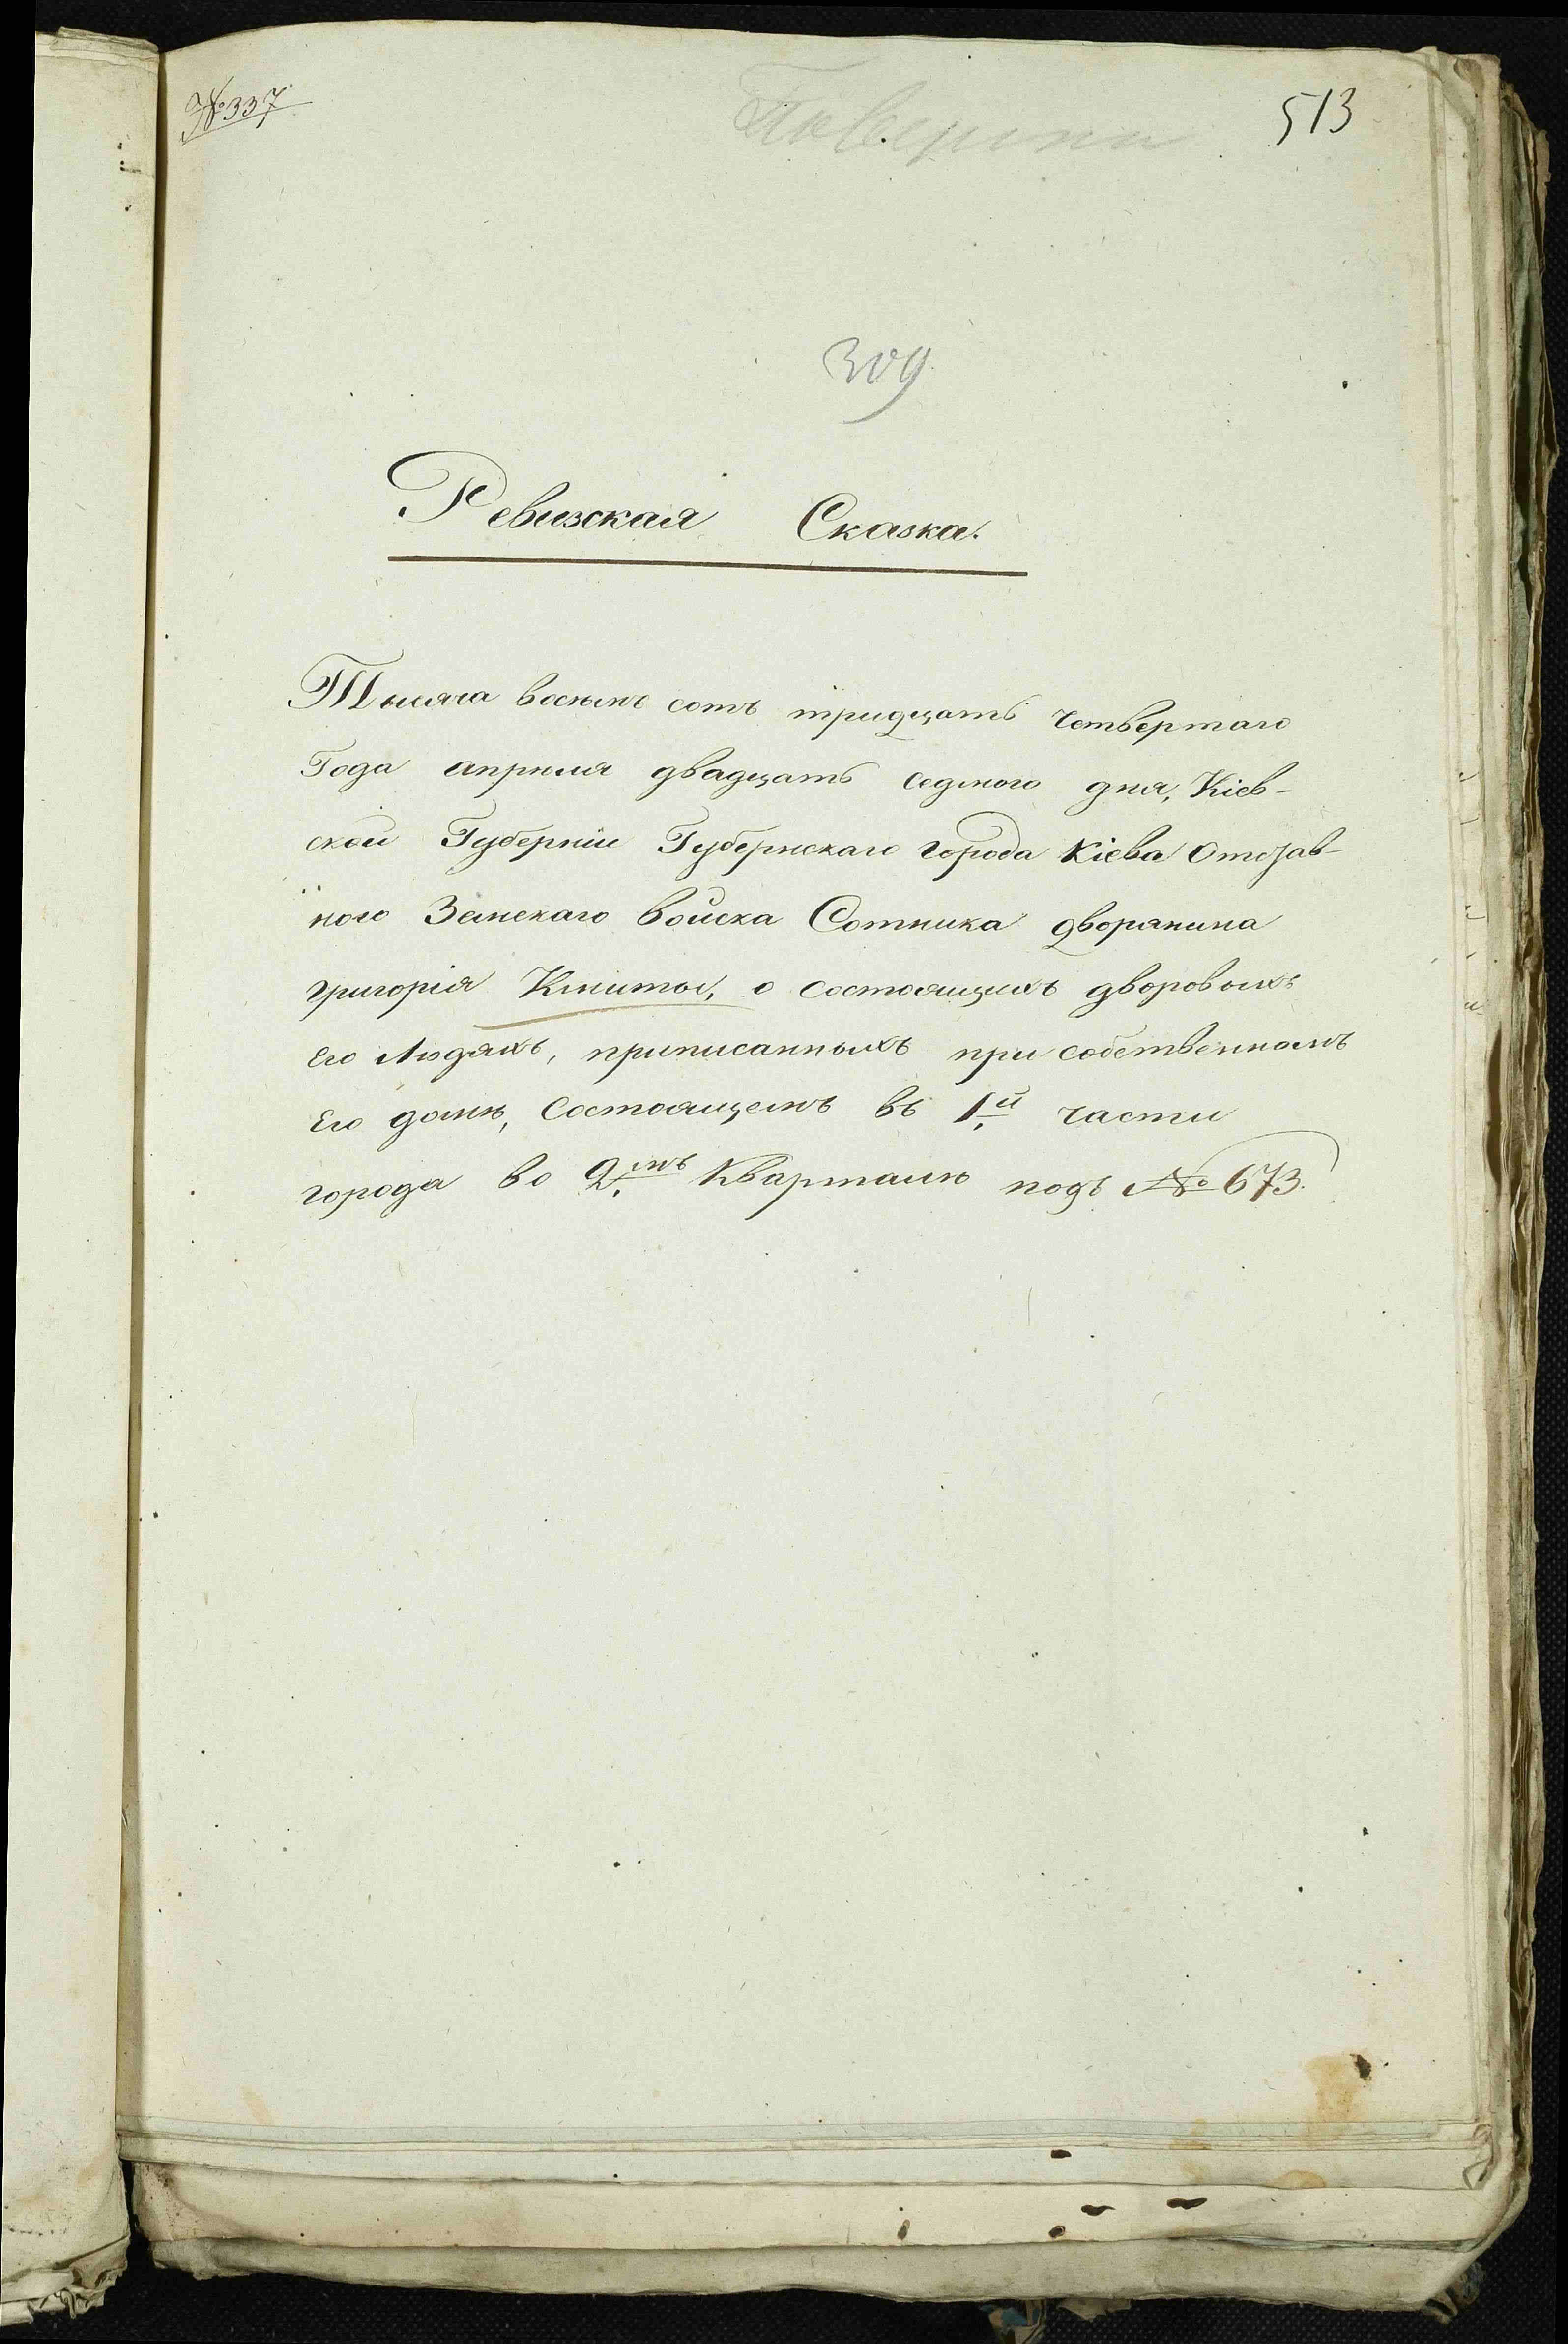 № 337
513
309.
Ревизская Сказка.
Тысяча восемь сотъ тридцать четвертаго
Года апреля двадцать седмого дня, Кіев-
ской Губерніи Губернскаго города Кіева Отстав-
ного Земскаго войска Сотника дворянина
григорія Кмиты, о состоящихъ дворовыхъ
Его Людяхъ, приписанныхъ при собственномъ
Его домѣ, Состоящемъ въ 1й части
города во 2.мъ Кварталѣ подъ № 673.